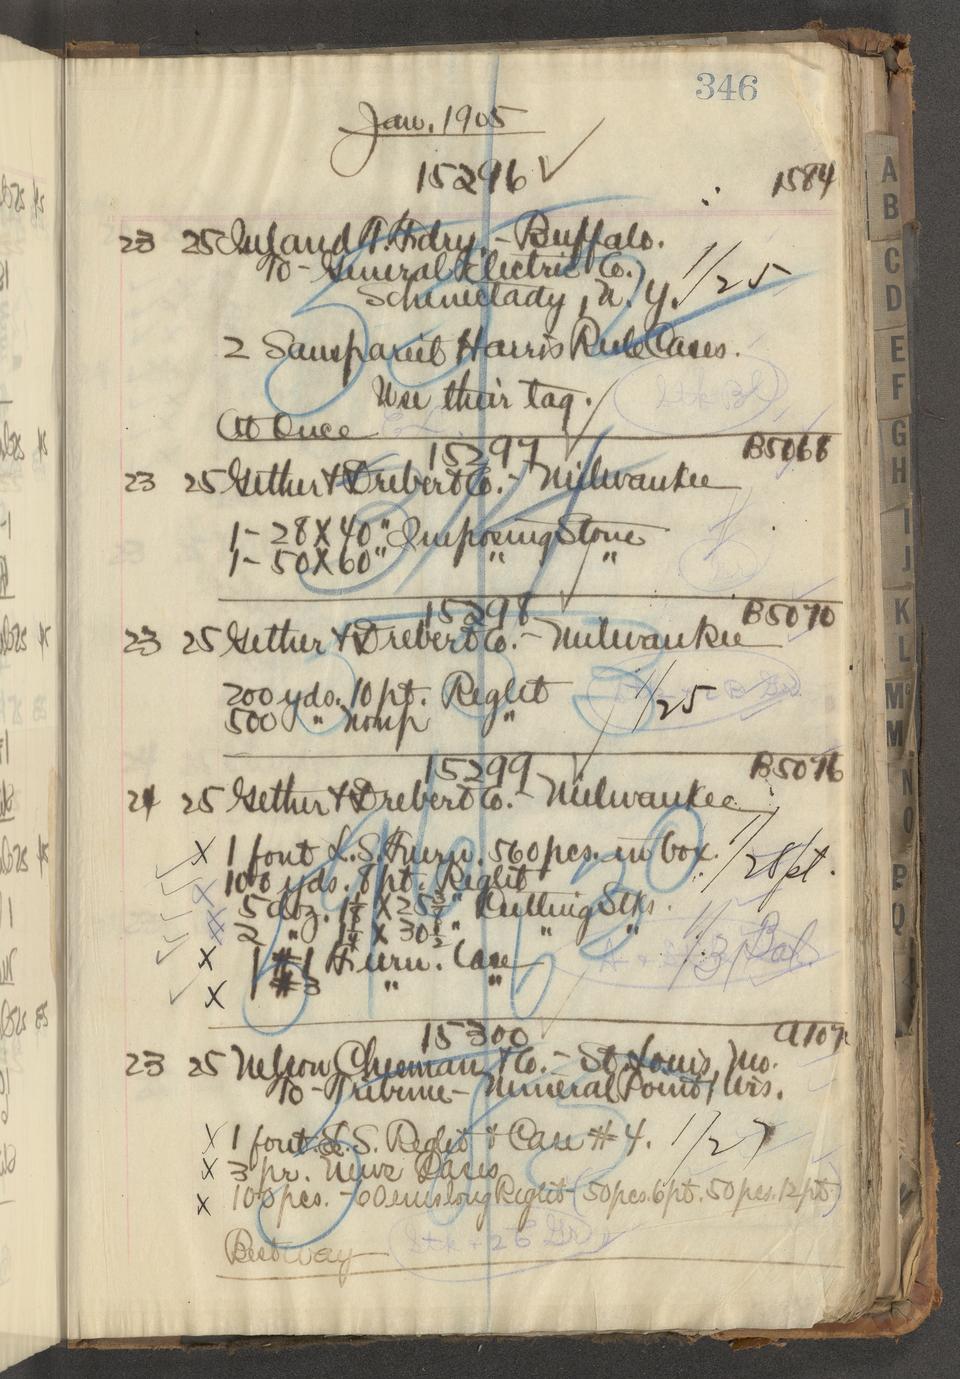 346
Jan. 1905
15296 ✓ 1584
23 25 Inland T. Fdry. - Buffalo.
To - General Electric Co.
Schenectady, N. Y. 1/25
2 Sanspareil Harris Rule Cases.
Use their tag.
At Once
15297 B5068
23 25 Gether & Drebert Co. - Milwaukee
1 - 28 X 40" Imposing Stone
1 - 50 X 60" " "
15298 B5070
23 25 Gether & Drebert Co. - Milwaukee
200 yds. 10 pt. Reglet 1/25
500 " Nomp "
15299 B5076
24 25 Gether & Drebert Co. - Milwaukee
X 1 font L. S. Furn. 560 pcs. in box. 1/28 pt.
X 100 yds. 8 pt. Reglet
X 5 doz. X 25 " Cutting Stks.
X 2 " X 30 1/2" " "
X 1 #1 Furn. Case 1/31 Bal
X 1 #3 " "
15300 A107
23 25 Nelson Chesman & Co. - St. Louis, Mo.
To - Tribune - Mineral Point, Wis.
X 1 font L. S. Reglet & Case #4. 1/27
X 3 pr. News Cases
X 100 pcs. - 60 ems long Reglet (50 pcs. 6 pt. 50 pcs. 12 pt.)
Stk + 26 Gr
Best way
A
B
C
D
E
F
G
H
I
J
K
L
Mc
M
N
O
P
Q